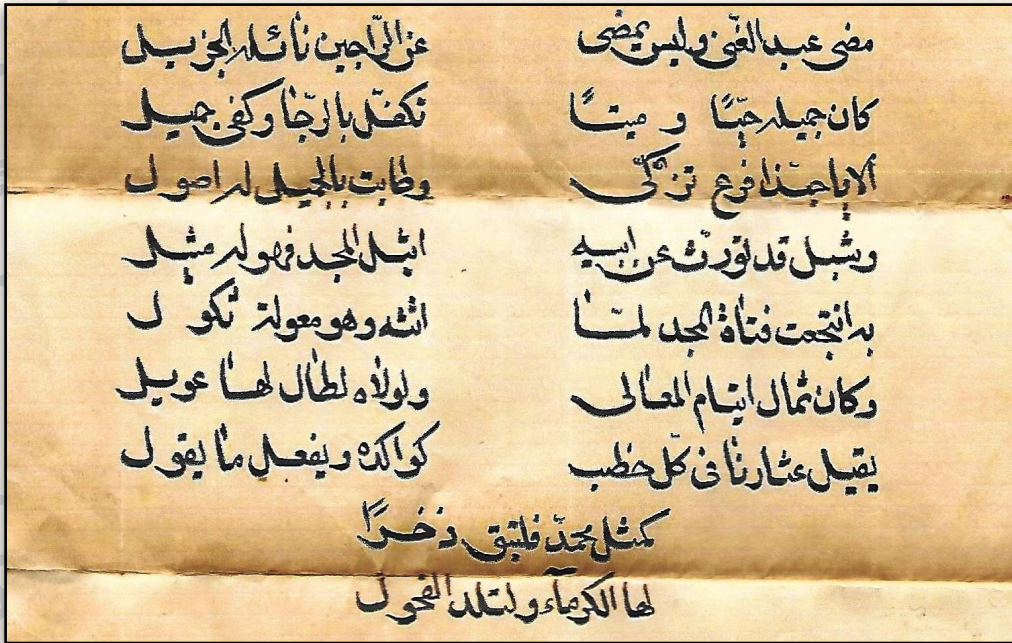 مضى عبد الغنى وليس يمضى عن الراجين نائله الجزيل
كان جميله حيّا و ميتا تكفّل بالرّجا وكفى جميل
ألا يا حبّذا فرع تزكّى وطابت بالجميل له اصول
وشبل قد تورّث عن ابيه اثيل المجد فهو له مثيل
به انتجعت فتاة المجد لمّا اتته وهو معولة ثكول
وكان ثمال ايتام المعالى ولولاه لطال لها عويل
يقيل عثارنا فى كلّ خطب ويفعل ما يقول
كمثل محمّد فلتبق ذخرًا
لها الكرماء ولتلد الفحول